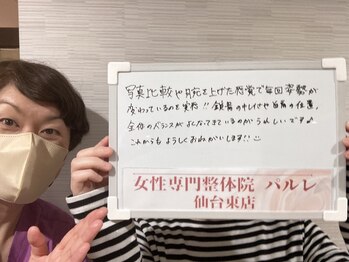 写真比較や腕を上げた感覚で毎回姿勢が
変わっているのを実感!! 鎖骨のキレイや肩の位置、
全体のバランスがよくなってきているのがうれしいです♪
これからもよろしくおねがいします!!
女性専門整体院 パルレ
仙台東店